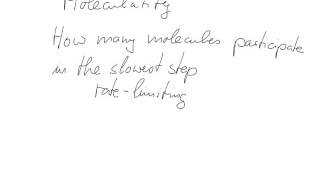 Molecularity
How many molecules participate
in the slowest step
rate-limiting